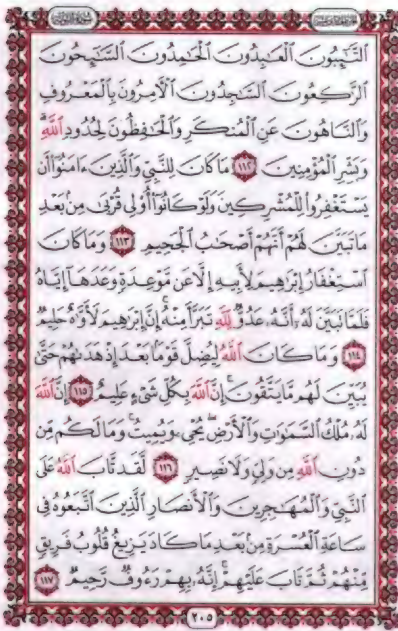 التَّٰٓئِبُونَ الْعَٰبِدُونَ الْحَٰمِدُونَ السَّٰٓئِحُونَ
الرَّٰكِعُونَ السَّٰجِدُونَ الْءَامِرُونَ بِالْمَعْرُوفِ
وَالنَّاهُونَ عَنِ الْمُنكَرِ وَالْحَٰفِظُونَ لِحُدُودِ اللَّهِ ۗ
وَبَشِّرِ الْمُؤْمِنِينَ ١١٢ مَا كَانَ لِلنَّبِيِّ وَالَّذِينَ ءَامَنُوٓا أَن
يَسْتَغْفِرُوا لِلْمُشْرِكِينَ وَلَوْ كَانُوٓا أُولِي قُرْبَىٰ مِنۢ بَعْدِ
مَا تَبَيَّنَ لَهُمْ أَنَّهُمْ أَصْحَٰبُ الْجَحِيمِ ١١٣ وَمَا كَانَ
اسْتِغْفَارُ إِبْرَٰهِيمَ لِأَبِيهِ إِلَّا عَن مَّوْعِدَةٍ وَعَدَهَآ إِيَّاهُ
فَلَمَّا تَبَيَّنَ لَهُۥٓ أَنَّهُۥ عَدُوٌّ لِّلَّهِ تَبَرَّأَ مِنْهُ ۚ إِنَّ إِبْرَٰهِيمَ لَأَوَّٰهٌ حَلِيمٌ
١١٤ وَمَا كَانَ اللَّهُ لِيُضِلَّ قَوْمًۢا بَعْدَ إِذْ هَدَىٰهُمْ حَتَّىٰ
يُبَيِّنَ لَهُم مَّا يَتَّقُونَ ۚ إِنَّ اللَّهَ بِكُلِّ شَىْءٍ عَلِيمٌ ١١٥ إِنَّ اللَّهَ
لَهُۥ مُلْكُ السَّمَٰوَٰتِ وَالْأَرْضِ ۖ يُحْىِۦ وَيُمِيتُ ۚ وَمَا لَكُم مِّن
دُونِ اللَّهِ مِن وَلِىٍّ وَلَا نَصِيرٍ ١١٦ لَّقَد تَّابَ اللَّهُ عَلَى
النَّبِىِّ وَالْمُهَٰجِرِينَ وَالْأَنصَارِ الَّذِينَ اتَّبَعُوهُ فِى
سَاعَةِ الْعُسْرَةِ مِنۢ بَعْدِ مَا كَادَ يَزِيغُ قُلُوبُ فَرِيقٍ
مِّنْهُمْ ثُمَّ تَابَ عَلَيْهِمْ ۚ إِنَّهُۥ بِهِمْ رَءُوفٌ رَّحِيمٌ ١١٧
٢٠٥